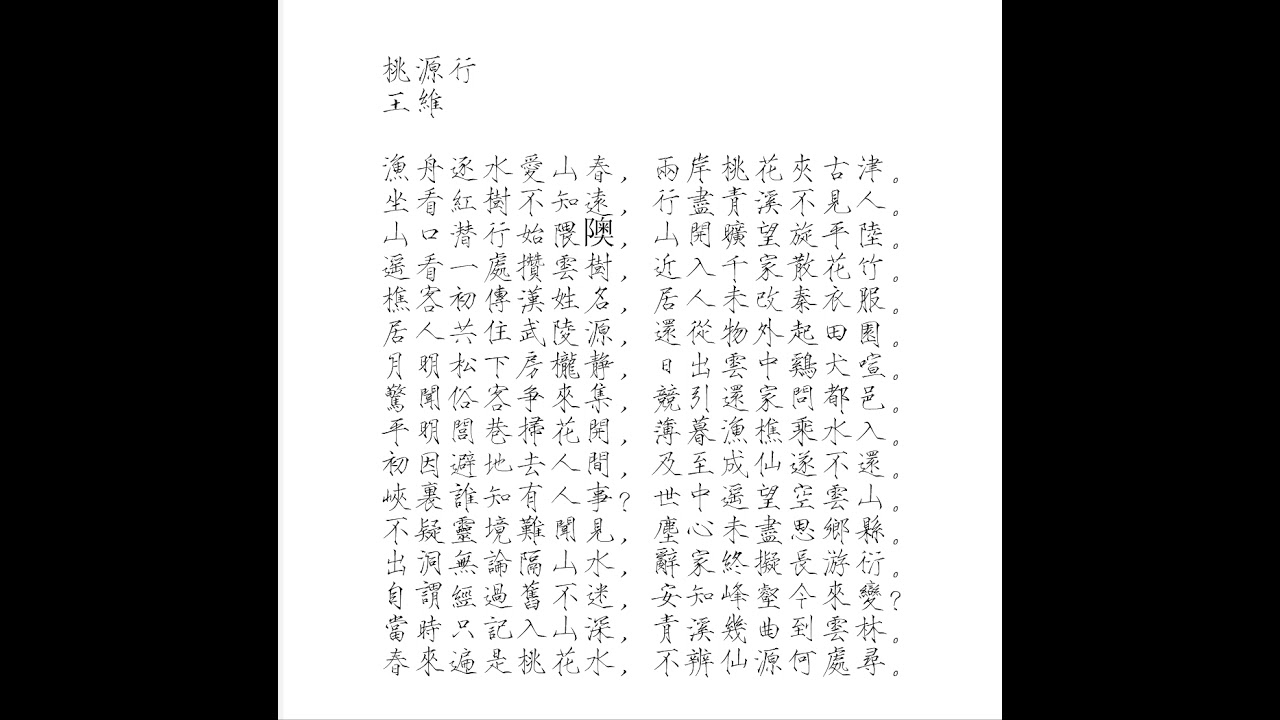 桃源行
王維
漁舟逐水愛山春，兩岸桃花夾古津。
坐看紅樹不知遠，行盡青溪不見人。
山口潛行始隈隩，山開曠望旋平陸。
遥看一處攢雲樹，近入千家散花竹。
樵客初傳漢姓名，居人未改秦衣服。
居人共住武陵源，還從物外起田園。
月明松下房櫳静，日出雲中鷄犬喧。
驚聞俗客爭來集，競引還家問都邑。
平明閭巷掃花開，薄暮漁樵乘水入。
初因避地去人間，及至成仙遂不還。
峽裏誰知有人事？世中遥望空雲山。
不疑靈境難聞見，塵心未盡思鄉縣。
出洞無論隔山水，辭家終擬長游衍。
自謂經過舊不迷，安知峰壑今來變？
當時只記入山深，青溪幾曲到雲林。
春來遍是桃花水，不辨仙源何處尋。